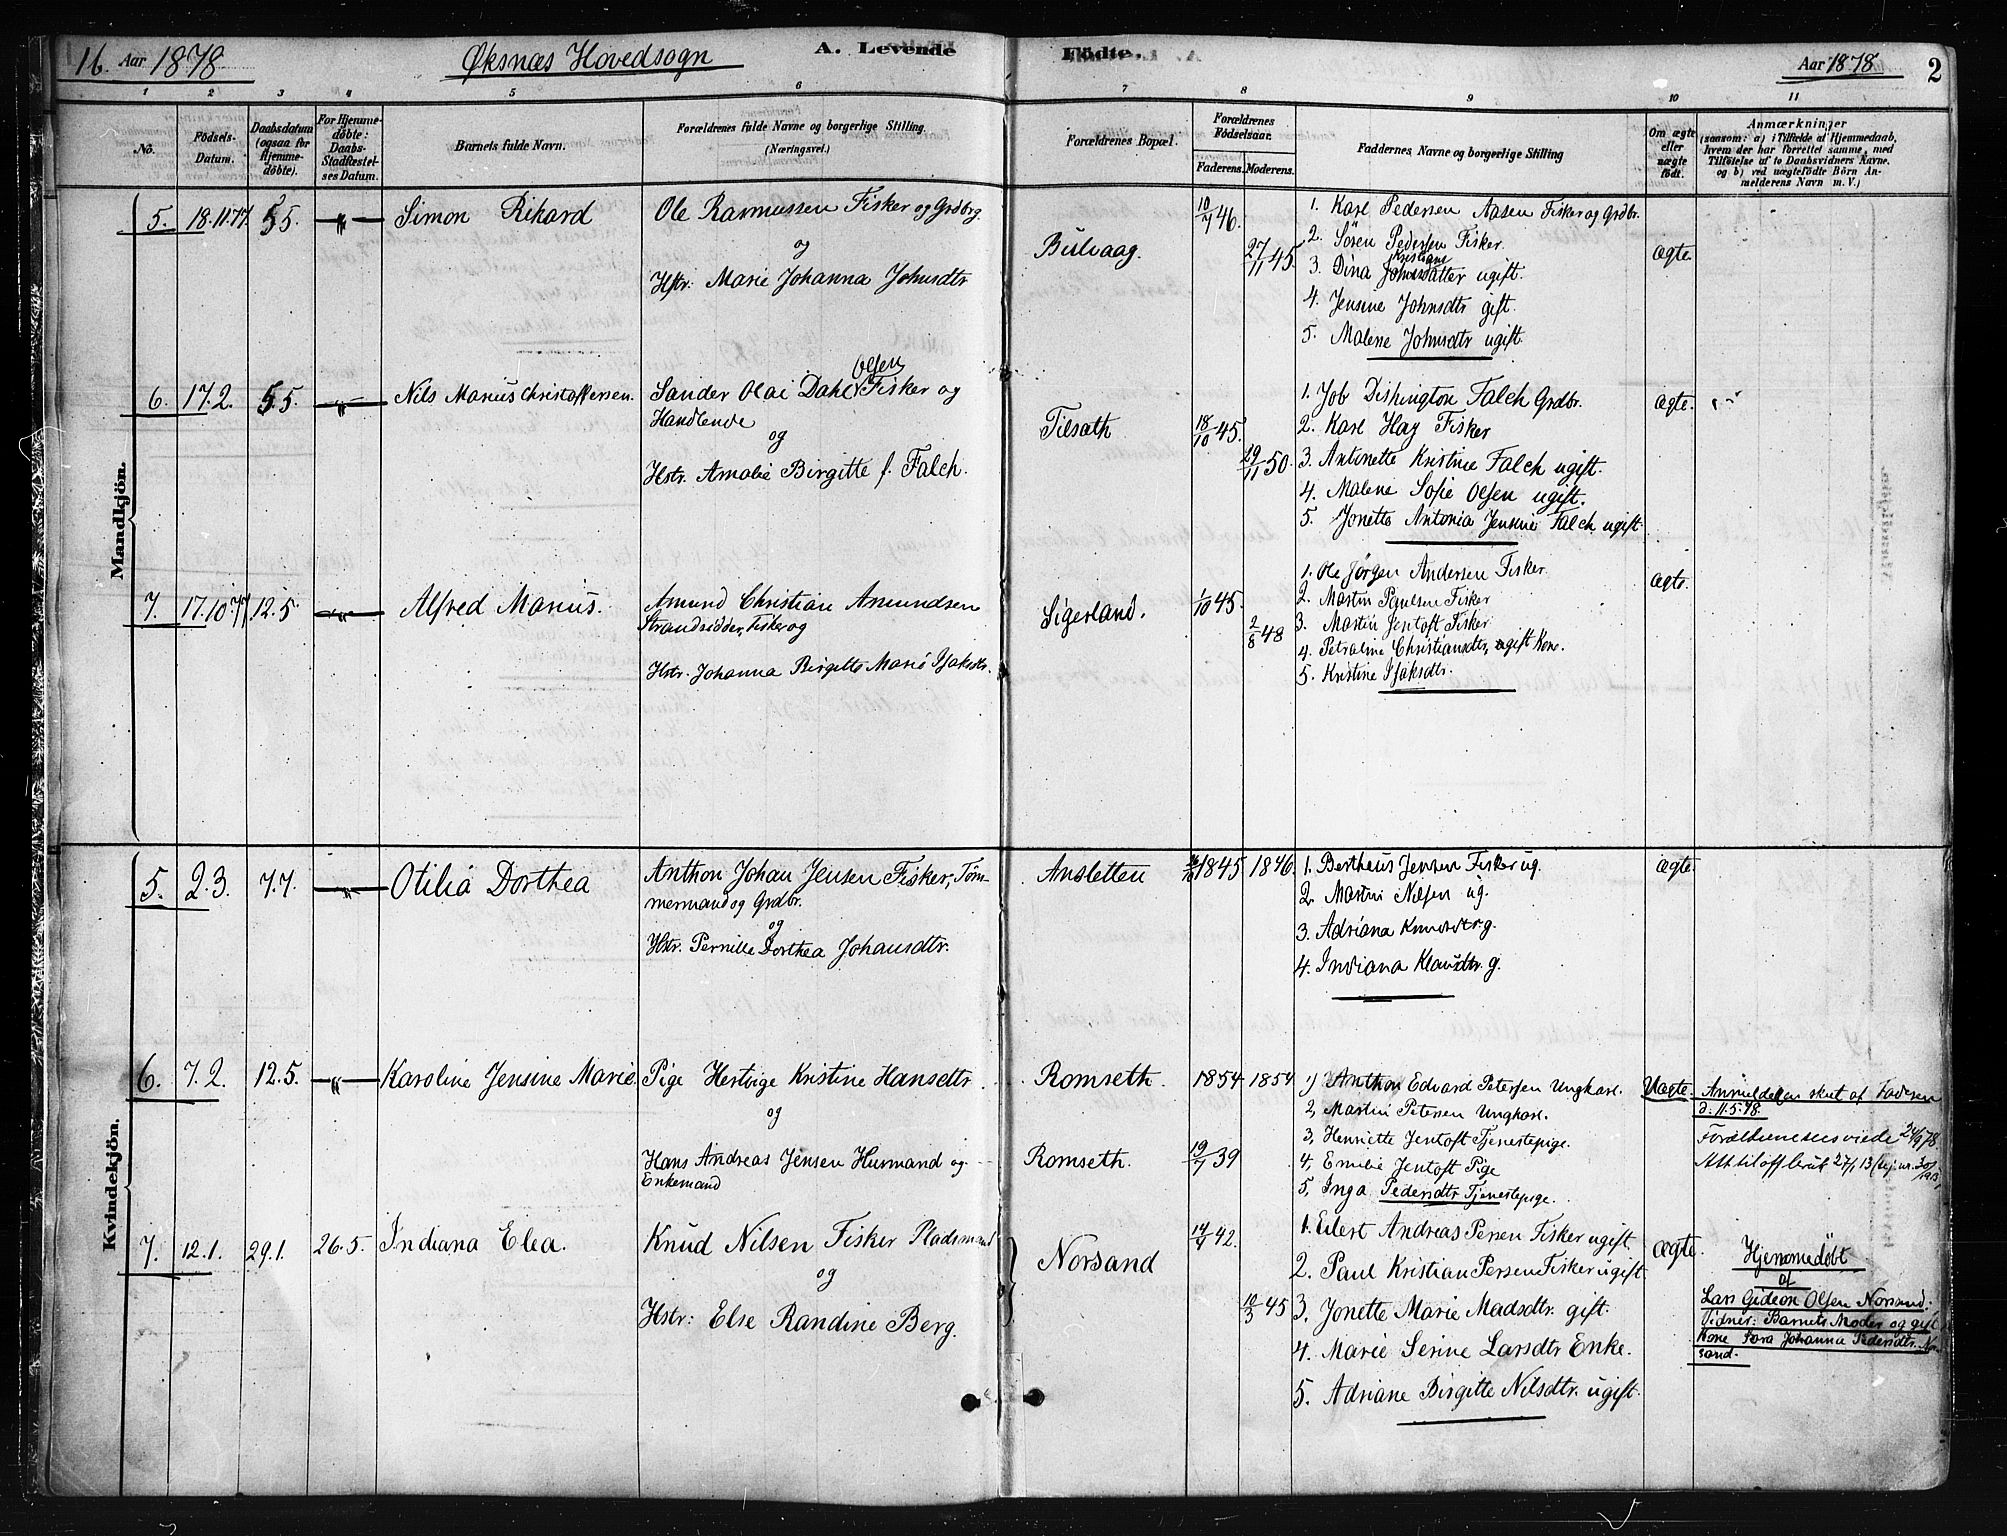 16. Aar 1878. Øksnæs Hovedsogn A. Levende Födte. Aar 1878 2
1 2 3 4 5 6 7 8 9 10 11
No.
Födsels-
Datum.
Daabsdatum
(ogsaa for
Hjemme-
döbte).
For Hjemme-
döbte:
Daabs-
Stadfæstel-
ses Datum.
Barnets fulde Navn.
Forældrenes fulde Navne og borgerlige Stilling.
(Næringsvei.)
Forældrenes Bopæl.
Forældrenes
Födselsaar.
Faderens. Moderens.
Faddernes Navne og borgerlige Stilling
Om ægte
eller
uægte
födt.
Anmærkninger
(saasom: a) i Tilfælde af Hjemmedaab,
hvem der har forrettet samme, med
Tilföielse af to Daabsvidners Navne.
og b) ved uægtefödte Börn An-
melderens Navn m. V.)
Mandkjön.
5. 18.11.77. 5.5. —„— Simon Rikard
Ole Rasmussen Fisker og Grdbrg.
og
Hstr: Marie Johanna Johnsdtr
Bulvaag.
10/7 46.
27/11 45.
1. Karl Pedersen Aasen Fisker og Grdbr.
2. Sören Pedersen Fisker.
Kristians
3. Dina datter ugift.
4. Jensine Johnsdtr gift.
5. Malene Johnsdtr ugift.
ægte.
6. 17.2. 5.5. —„— Nils Marius Christoffersen.
Olsen
Sander Olai Dahl Fisker og
Handlende
og
Hstr. Amalie Birgitte f. Falch.
Tilsath
18/10 45.
29/11 50.
1. Job Dishington Falch Grdbr.
2. Karl Hay Fisker
3. Antonette Kristine Falch ugift.
4. Malene Sofie Olsen ugift.
5. Jonette Antonia Jensine Falch ugift.
ægte.
7. 17.10.77. 12.5 —„— Alfred Marius.
Amund Christian Amundsen
Strandsidder, Fisker og
Hstr. Johanna Birgitte Marie Isaksdtr.
Sigerland.
1/10 45.
2/8 48
1. Ole Jørgen Andersen Fisker
2. Martin Paulsen Fisker
3. Martin Jentoft Fisker
4. Petraline Christiansdtr, gift Kone.
5. Kristine Isaksdtr.
ægte.
Kvindekjön.
5. 2.3. 7.7. —„— Otilia Dorthea
Anthon Johan Jensen Fisker, Töm-
mermand og Grdbr.
og
Hstr. Pernille Dorthea Johansdtr.
Ansletten
1845 1846
1. Bertheus Jensen Fisker ug.
2. Martin Nilsen ug.
3. Adriana g.
4. Indiana Klausdtr. g.
ægte
6. 7.2. 12.5. —„— Karoline Jensine Marie.
Pige Hertvige Kristine Hansdtr
og
Hans Andreas Jensen Husmand og
Enkemand
Romseth. 1854 1854
Romseth. 19/7 39
1, Anthon Edvard Petersen Ungkarl.
2, Martin Petersen Ungkarl.
3, Henriette Jentoft Tjenestepige.
4, Emilie Jentoft Pige
5, Inga Pedersdtr Tjenestepige.
Uægte.
Anmeldelsen skut af Faderen
d. 11.5.78.
Forældrene viede 24/9 78
Att til
7. 12.1. 29.1. 26.5. Indiana Elea.
Knud Nilsen Fisker Pladsmand
og
Hstr: Else Randine Berg.
Norsand
14/4 42.
10/3 45
1. Eilert Andreas Persen Fisker ugift.
2. Paul Kristian Persen Fisker ugift.
3. Jonette Marie Madsdtr. gift.
4. Marie Serine Larsdtr Enke.
5. Adriane Birgitte Nilsdtr. ugift.
Ægte.
Hjemmedøbt
af
Lars Gideon Olsen Norsand;
Vidner: Barnets Moder og gift
Kone Sara Johanna Pedersdtr. Nor-
sand.